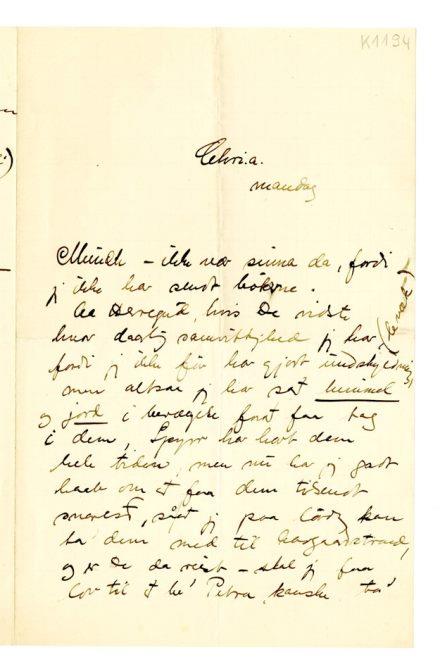 K1194
Chri.a.
mandag
Munch – ikke vær sinna da, fordi
jeg ikke har sendt bøkerne.
Aa Herregud, hvis De vidste
hvor daarlig samvittighed jeg har,
fordi jeg ikke før har gjort undskyldning
men altsaa jeg har sat himmel
og jord i bevægelse forat faa tag
i dem, har havt dem
hele tiden, men nu har jeg godt
haab om at faa dem tilsendt
snarest, saa at jeg paa Lørdag kan
ta dem med til Aasgaardstrand,
og er De da reist – skal jeg faa
lov til at be' Petra kanske ta'